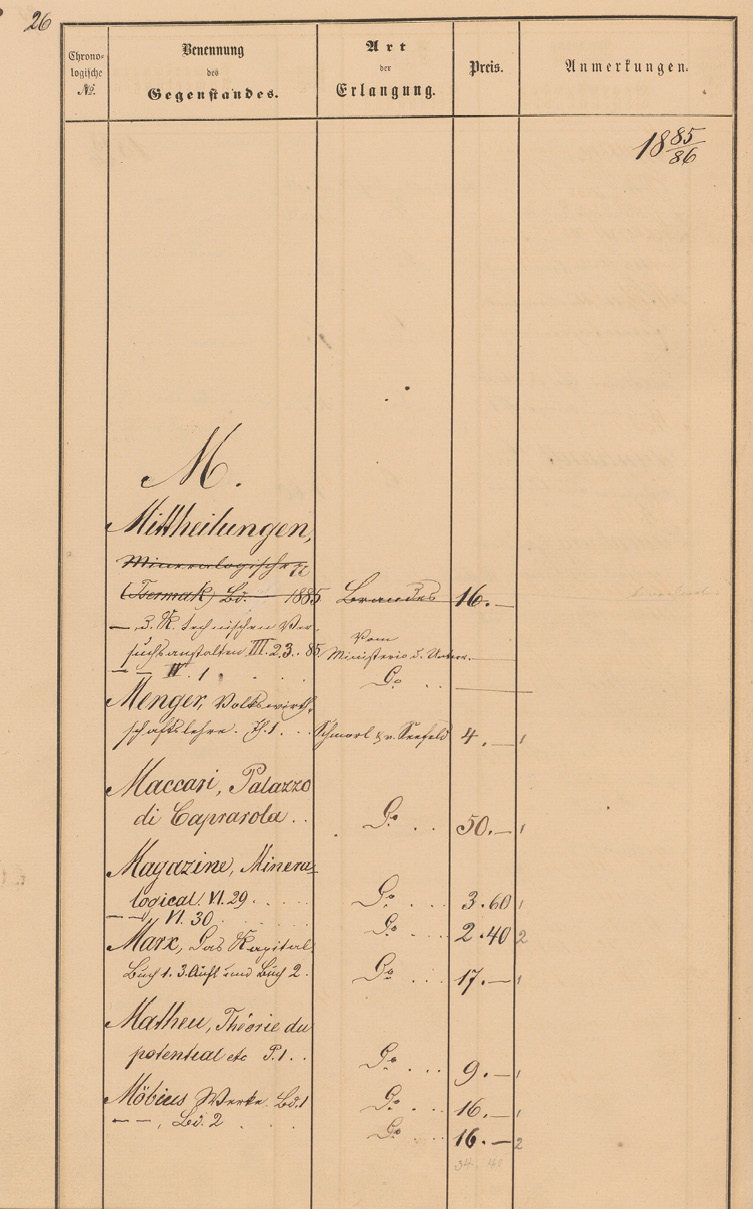 26
Chrono-
logische
No.
Benennung
des
Gegenstandes.
Art
der
Erlangung.
Preis.
Anmerkungen.
1885/86
M.
Mittheilungen,
Mineralogische
(Tsermak) Bd. — 1885 Brandes 16.—
—, d. K. technischen Ver-
suchsanstalten III. 2 3. 85. Vom Ministerio d. Unterr. —
— — IV. 1 . . . Do . . —
Menger, Volkswirth-
schaftslehre. Th. 1 . . . Schmorl & v. Seefeld 4.— 1
Maccari, Palazzo
di Caprarola . . Do . . . 50.— 1
Magazine, Minera-
logical. VI. 29 . . . . Do . . . 3.60 1
— — VI. 30 . . . Do . . . 2.40 2
Marx, Das Kapital.
Buch 1. 3. Aufl und Buch 2 . Do . . . 17.— 1
Mathieu, Théorie du
potential etc P. 1 . . Do . . . 9.— 1
Möbius Werke. Bd. 1 Do . . . 16.— 1
— —, Bd. 2 . . . Do . . . 16.— 2